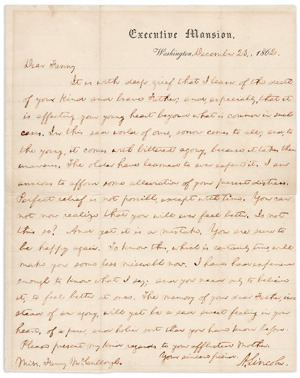 Executive Mansion,
Washington, December 23, 1862.
Dear Fanny
It is with deep grief that I learn of the death
of your kind and brave Father; and, especially, that it
is affecting your young heart beyond what is common in such
cases. In this sad world of ours, sorrow comes to all; and, to
the young, it comes with bitterest agony, because it takes them
unawares. The older have learned to ever expect it. I am
anxious to afford some alleviation of your present distress.
Perfect relief is not possible, except with time. You can
not now realize that you will ever feel better. Is not
this so? And yet it is a mistake. You are sure to
be happy again. To know this, which is certainly true, will
make you some less miserable now. I have had experience
enough to know what I say; and you need only to believe
it, to feel better at once. The memory of your dear Father, in-
stead of an agony, will yet be a sad sweet feeling in your
heart, of a purer, and holier sort than you have known before.
Please present my kind regards to your afflicted mother.
Your sincere friend,
A. Lincoln.
Miss. Fanny McCullough.